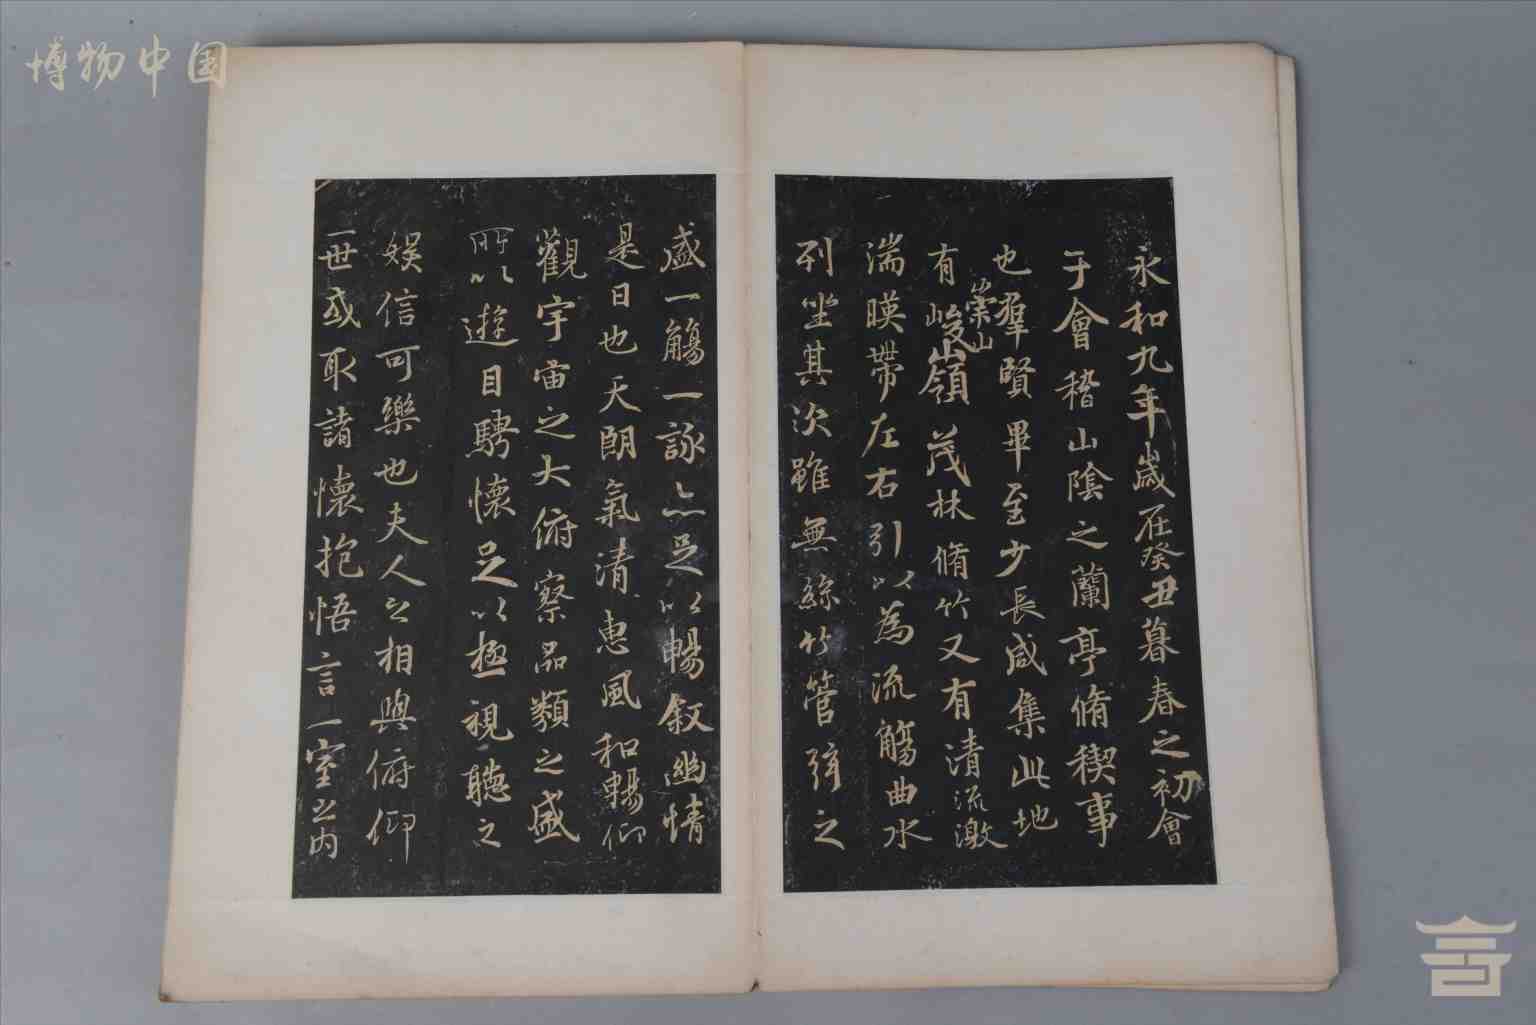 博物中国
永和九年歲在癸丑暮春之初會
于會稽山陰之蘭亭脩稧事
也羣賢畢至少長咸集此地
有崇山峻領茂林脩竹又有清流激
湍暎帶左右引以為流觴曲水
列坐其次雖無絲竹管弦之
盛一觴一詠亦足以暢叙幽情
是日也天朗氣清惠風和暢仰
觀宇宙之大俯察品類之盛
所以遊目騁懷足以極視聽之
娛信可樂也夫人之相與俯仰
一世或取諸懷抱悟言一室之內